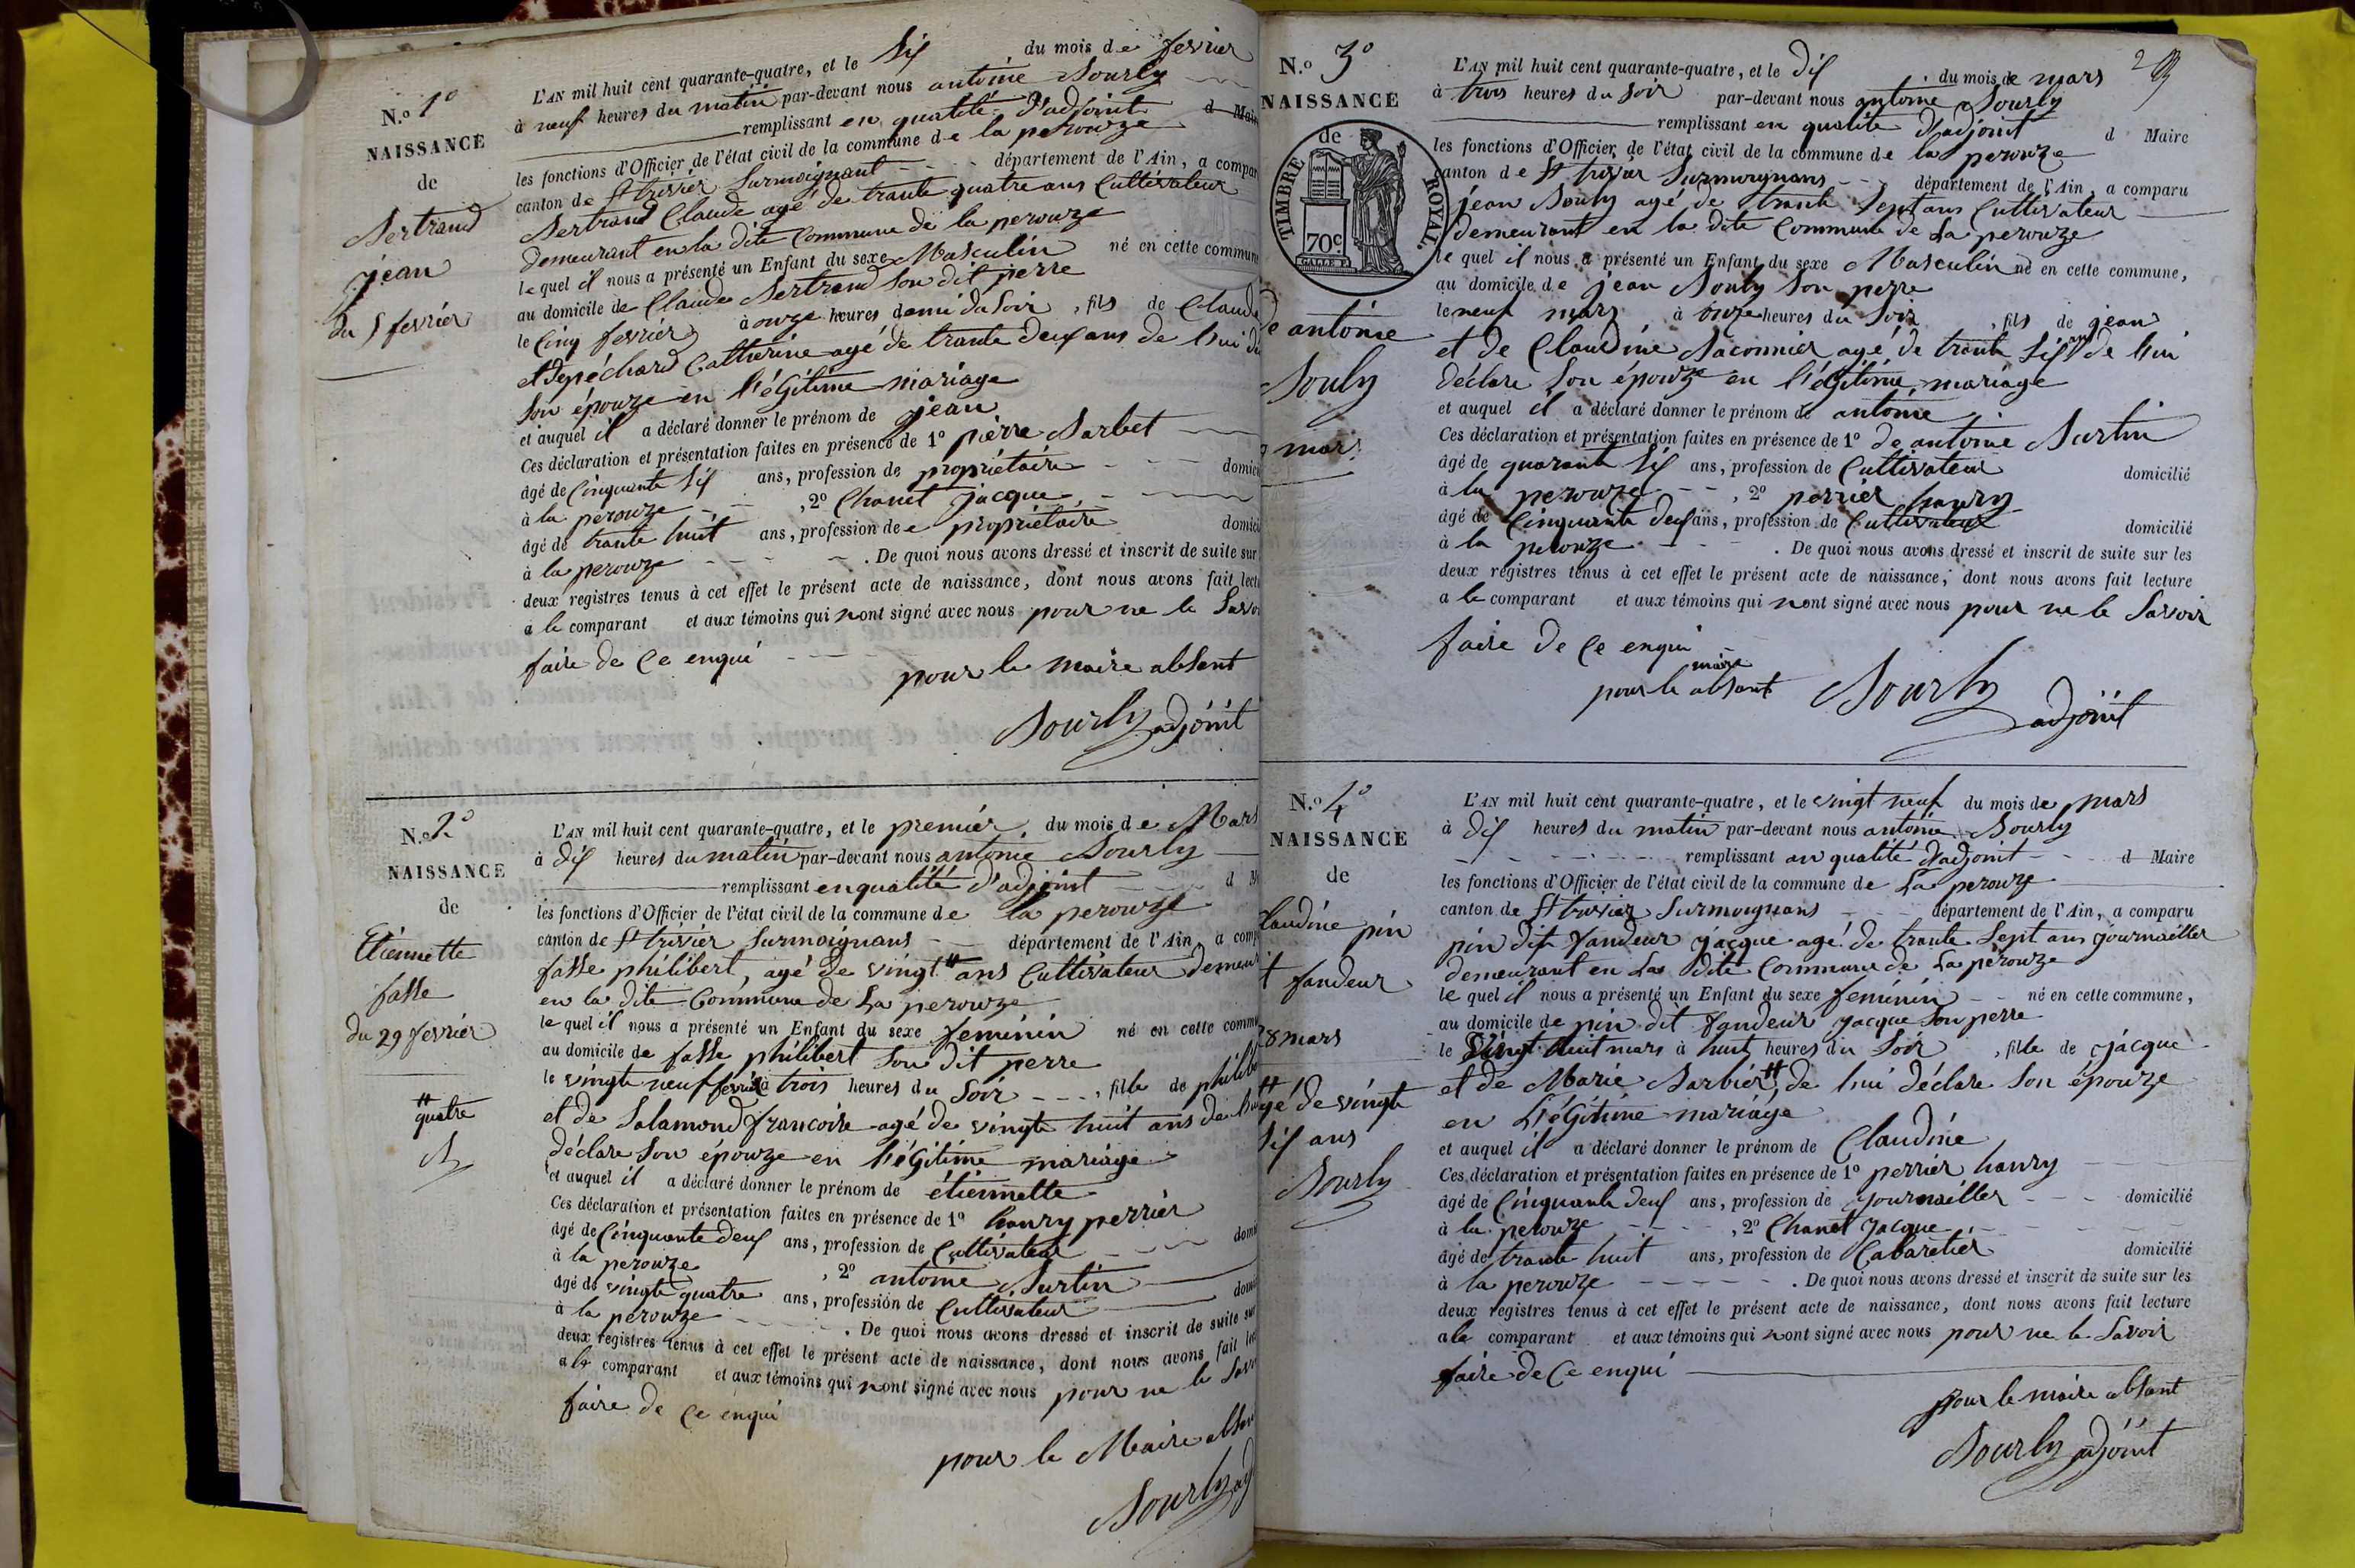 N.º 1º
NAISSANCE
de
Bertrand
jean
du 5 fevrier
L'AN mil huit cent quarante-quatre, et le six du mois de fevrier
à neuf heures du matin par-devant nous antoine Bourly
remplissant en qualité d'adjoint d Mair
les fonctions d'Officier de l'état civil de la commune de la perouze
canton de St trivier Surmoignant département de l'Ain, a compar
Bertrand Claude agé de trante quatre ans Cultivateur
demeurant en la dite Commune de la perouze
lequel il nous a présenté un Enfant du sexe Masculin né en cette commune
au domicile de Claude Bertrand Son dit perre
le Cinq fevrier à onze heures demi du Soir, fils de Claude
et Depéchard Catherine agé de trante deux ans de lui dé
Son épouze en l'égitime mariage
et auquel il a déclaré donner le prénom de jean
Ces déclaration et présentation faites en présence de 1º pierre Barbet
âgé de Cinquante Six ans, profession de propriétaire domici
à la perouze, 2º Chanet jacque
âgé de trante huit ans, profession de propriétaire domici
à la perouze. De quoi nous avons dressé et inscrit de suite sur
deux registres tenus à cet effet le présent acte de naissance, dont nous avons fait lect
a le comparant et aux témoins qui nont signé avec nous pour ne le Savo
faire de Ce enqui
pour le maire absent
Bourly adjoint
N.º 2º
NAISSANCE
de
Etiennette
fasse
du 29 fevrier
#
quatre
B
L'AN mil huit cent quarante-quatre, et le premier du mois de Mars
à dix heures du matin par-devant nous antoine Bourly
remplissant en qualité d'adjoint d M
les fonctions d'Officier de l'état civil de la commune de la perouze
canton de St trivier Surmoignans département de l'Ain, a comp
fasse philibert, agé de vingt # ans Cultivateur demeur
en la dite Commune de La perouze
lequel il nous a présenté un Enfant du sexe feminin né en cette commu
au domicile de fasse philibert Son dit perre
le vingte neuf fevrier à trois heures du Soir, fille de philibe
et de Salamond francoise agé de vingte huit ans de lui
déclare Son épouze en l'égitime mariage
et auquel il a déclaré donner le prénom de étiennette
Ces déclaration et présentation faites en présence de 1º hanry perrier
âgé de Cinquante deux ans, profession de Cultivateur domi
à la perouze, 2º antoine Burtin
âgé de vingte quatre ans, profession de Cultivateur domi
à la perouze. De quoi nous avons dressé et inscrit de suite sur
deux registres tenus à cet effet le présent acte de naissance, dont nous avons fait lec
a le comparant et aux témoins qui nont signé avec nous pour ne le Savo
faire de Ce enqui
pour le Maire absen
Bourly ad
2
N.º 3º
NAISSANCE
de
TIMBRE ROYAL.
70c
GALLE F.
de antoine
Bouly
9 mars
L'AN mil huit cent quarante-quatre, et le dix du mois de mars
à trois heures du Soir par-devant nous antoine Bourly
remplissant en qualité d'adjoint d Maire
les fonctions d'Officier de l'état civil de la commune de la perouze
canton de St trivier Surmoignans département de l'Ain, a comparu
jean Bouly agé de trante Sept ans Cultivateur
demeurant en la dite Commune de La perouze
le quel il nous a présenté un Enfant du sexe Masculin né en cette commune,
au domicile de jean Bouly Son perre
le neuf mars à onze heures du Soir, fils de jean
et de Claudine Baconnier agé de trante Six ans de lui
déclare Son épouze en l'égitime mariage
et auquel il a déclaré donner le prénom de antoine
Ces déclaration et présentation faites en présence de 1º de antoine Burtin
âgé de quarante Six ans, profession de Cultivateur domicilié
à la perouze, 2º perrier hanry
âgé de Cinquante deux ans, profession de Cultivateur domicilié
à la perouze. De quoi nous avons dressé et inscrit de suite sur les
deux registres tenus à cet effet le présent acte de naissance, dont nous avons fait lecture
a le comparant et aux témoins qui nont signé avec nous pour ne le Savoir
faire de Ce enqui
pour le maire absant Bourly adjoint
N.º 4º
NAISSANCE
de
laudine pin
it fandeur
28 mars
#
agé de vingte
Six ans
Bourly
L'AN mil huit cent quarante-quatre, et le vingt neuf du mois de mars
à dix heures du matin par-devant nous antoine Bourly
remplissant an qualité d'adjoint d Maire
les fonctions d'Officier de l'état civil de la commune de La perouze
canton de St trivier Surmoignans département de l'Ain, a comparu
pin dit fandeur jacque agé de trante Sept ans journailler
demeurant en La dite Commune de La perouze
le quel il nous a présenté un Enfant du sexe feminin né en cette commune,
au domicile de pin dit fandeur jacque Son perre
le vingt huit mars à huit heures du Soir, fille de jacque
et de Marie Barbier # de lui déclare Son épouze
en L'égitime mariage
et auquel il a déclaré donner le prénom de Claudine
Ces déclaration et présentation faites en présence de 1º perrier hanry
âgé de Cinquante deux ans, profession de journailler domicilié
à la perouze, 2º Chanet jacque
âgé de trante huit ans, profession de Cabaretier domicilié
à la perouze. De quoi nous avons dressé et inscrit de suite sur les
deux registres tenus à cet effet le présent acte de naissance, dont nous avons fait lecture
a le comparant et aux témoins qui nont signé avec nous pour ne le Savoir
faire de Ce enqui
pour le maire absant
Bourly adjoint